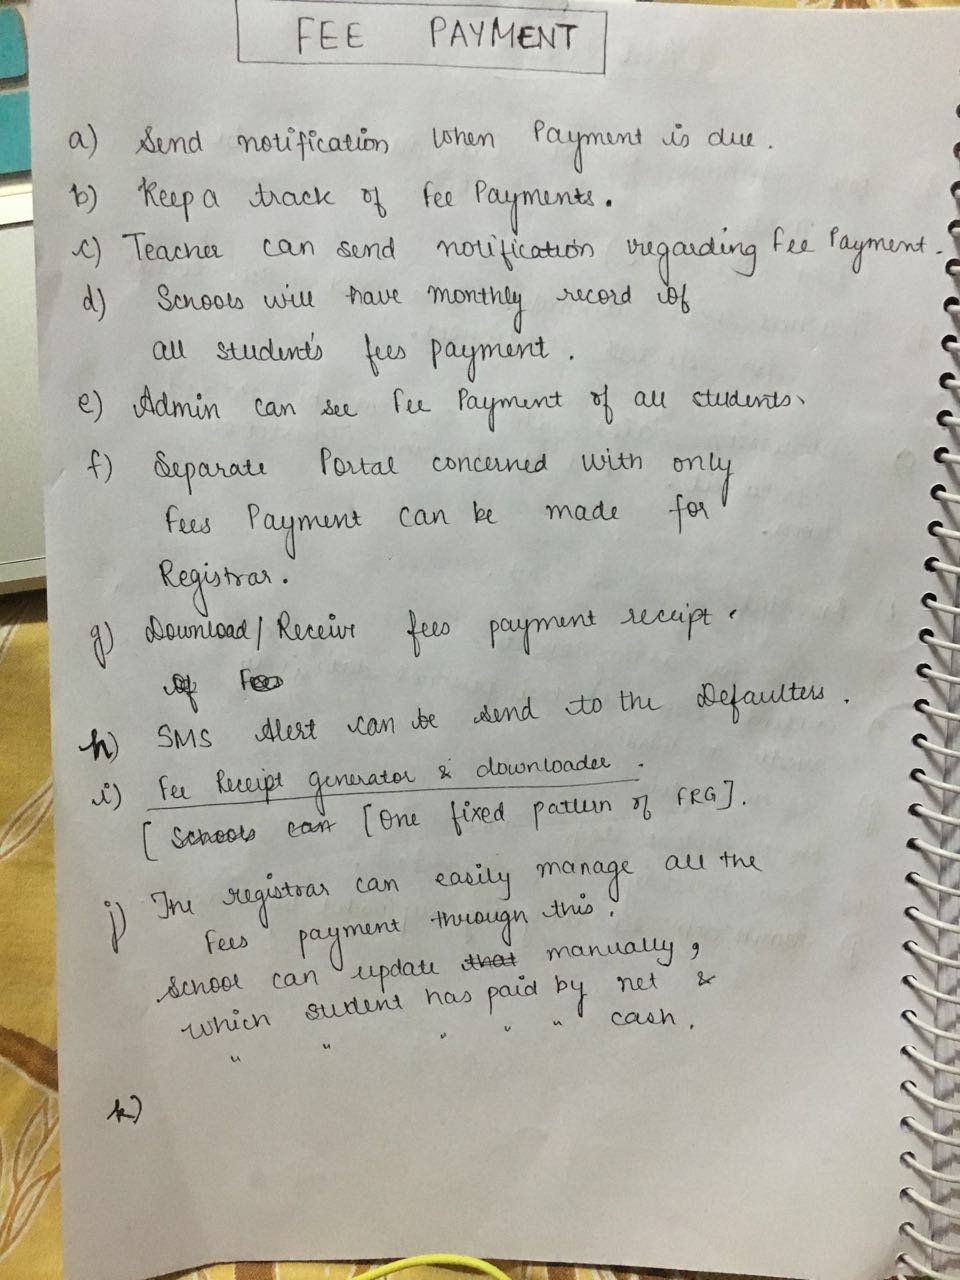 FEE PAYMENT
a) Send notification when Payment is due.
b) Keep a track of fee Payments.
c) Teacher can send notification regarding fee Payment.
d) Schools will have monthly record of
all student's fees payment.
e) Admin can see fee Payment of all students.
f) Separate Portal concerned with only
fees Payment can be made for
Registrar.
g) Download/Receive fees payment receipt.
of Fees
h) SMS Alert can be send to the Defaulters.
i) Fee Receipt generator & downloader.
[ Schools can [One fixed pattern of FRG].
j) The registrar can easily manage all the
fees payment through this.
School can update that manually,
which student has paid by net &
" " " " " cash.
k)